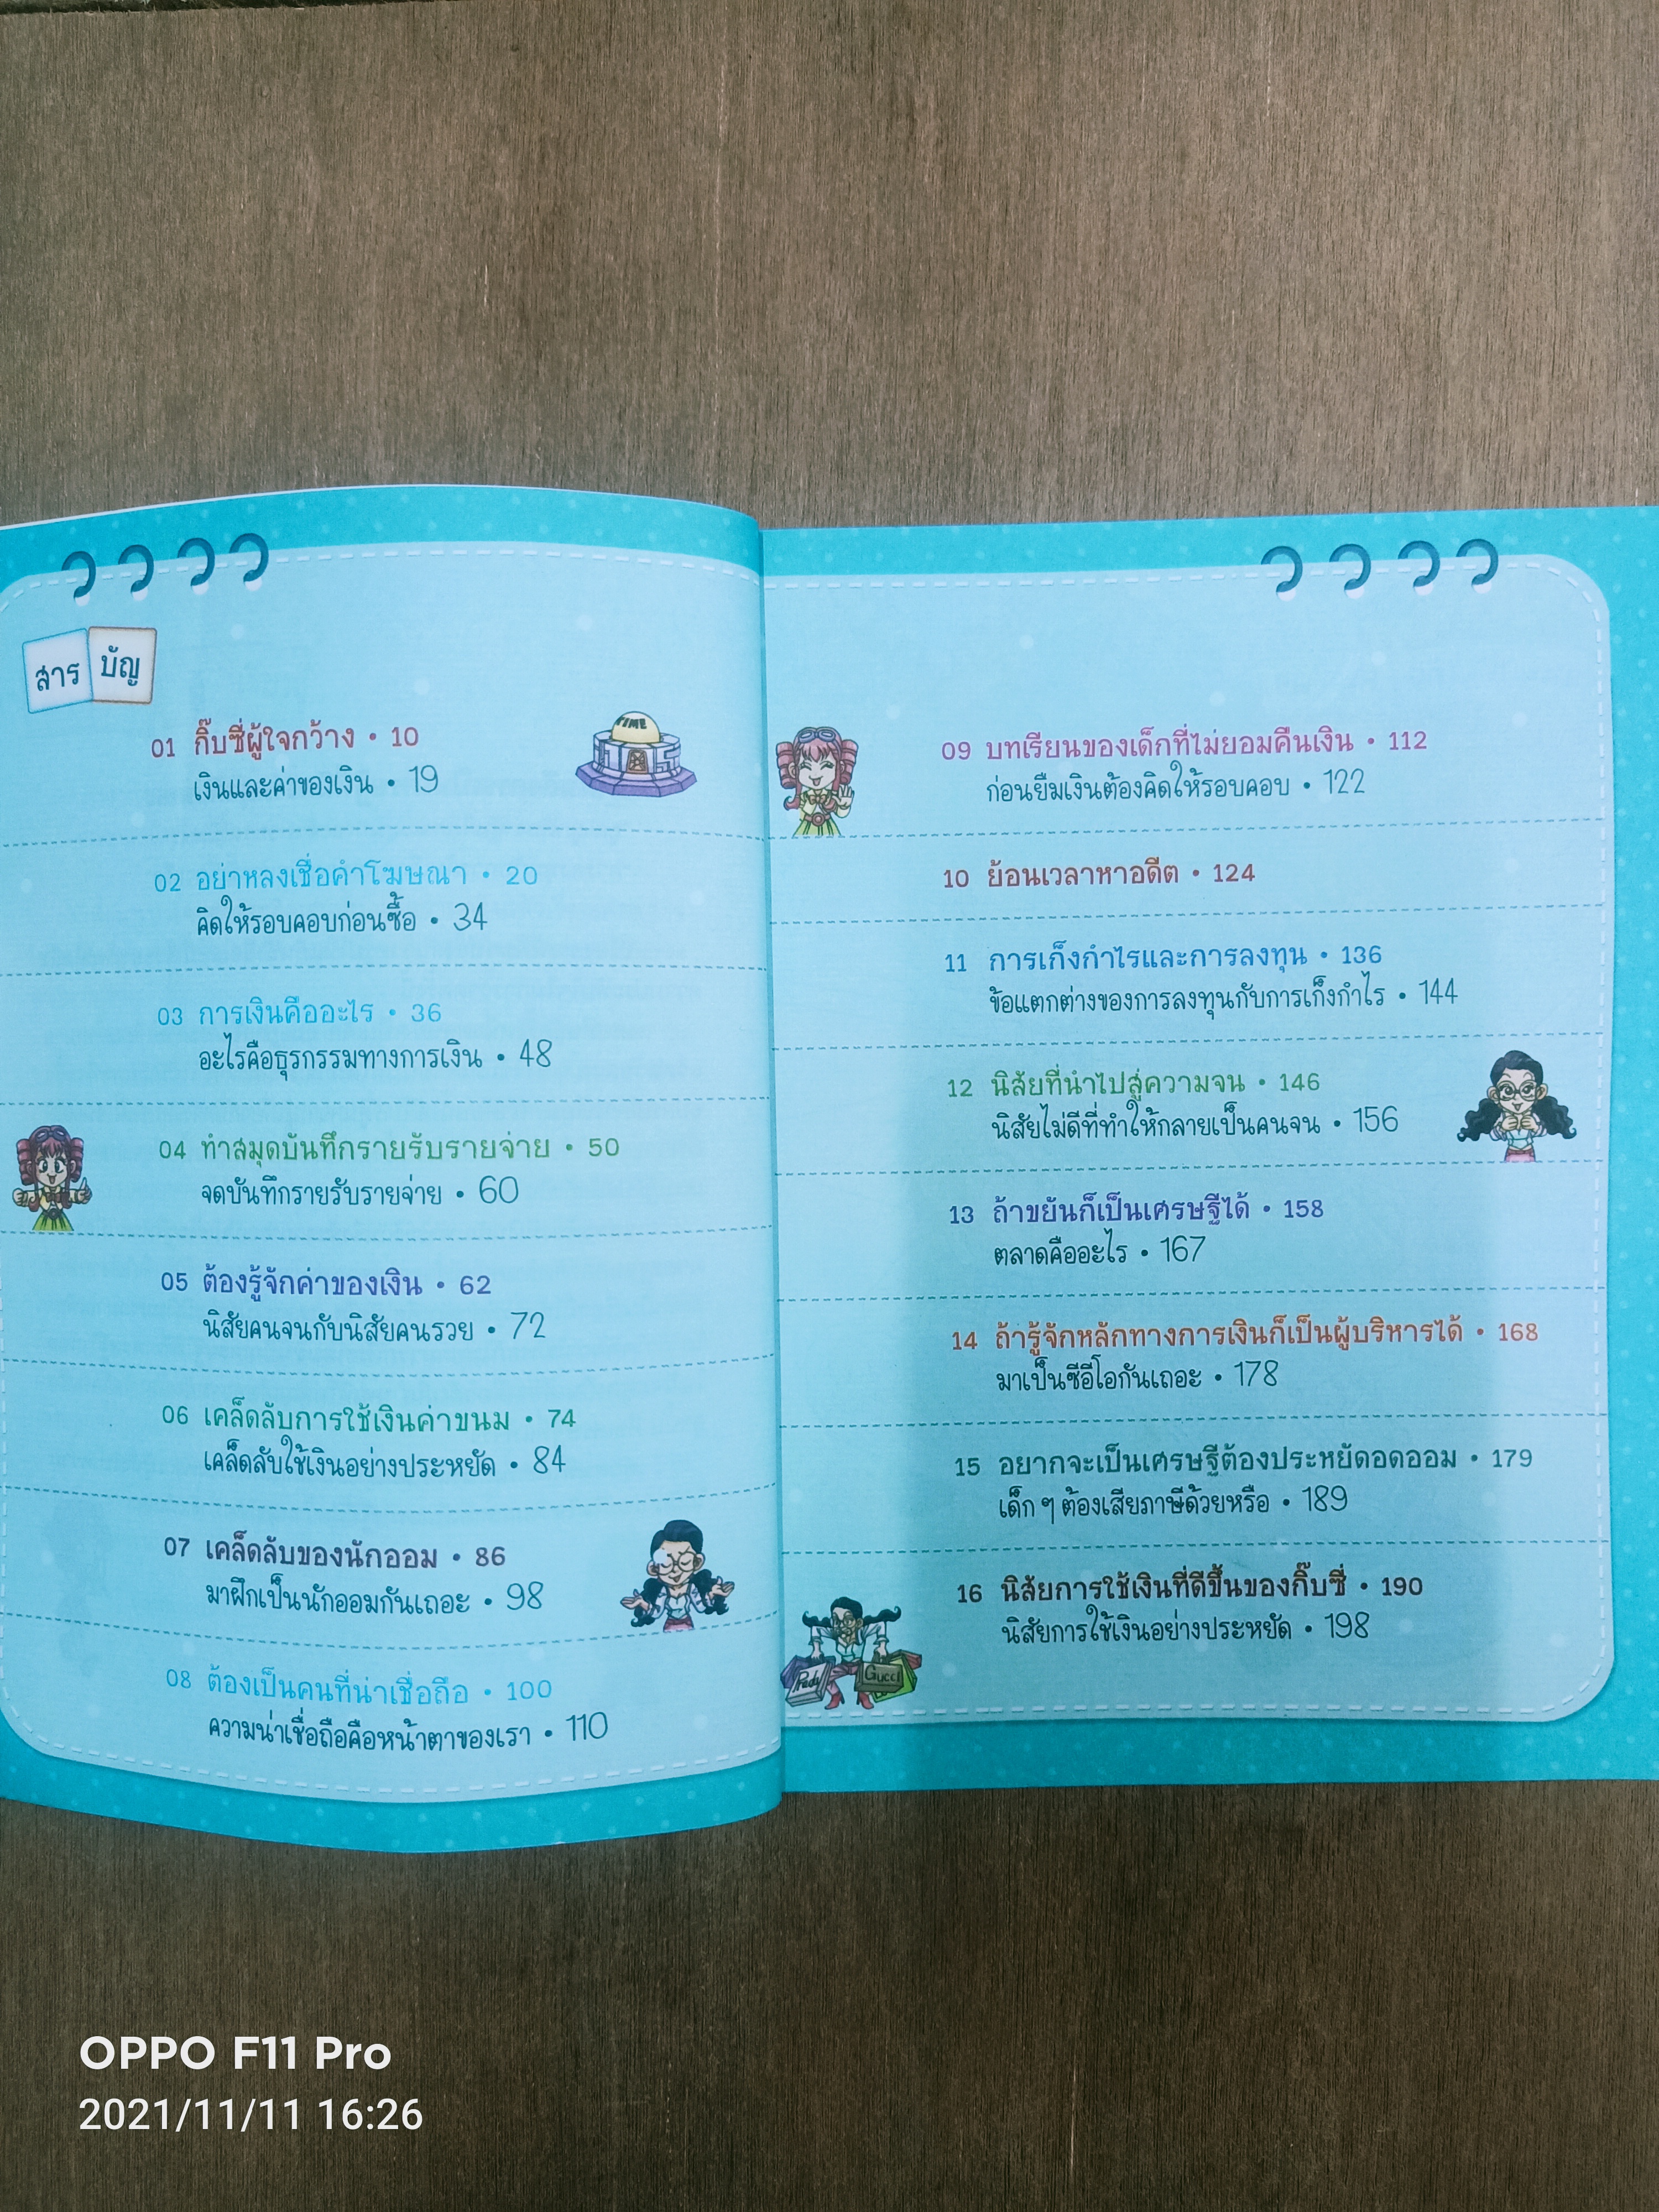 สารบัญ
01 กิ๊บซี่ผู้ใจกว้าง • 10
เงินและค่าของเงิน • 19
TIME
02 อย่าหลงเชื่อคำโฆษณา • 20
คิดให้รอบคอบก่อนซื้อ • 34
03 การเงินคืออะไร • 36
อะไรคือธุรกรรมทางการเงิน • 48
04 ทำสมุดบันทึกรายรับรายจ่าย • 50
จดบันทึกรายรับรายจ่าย • 60
05 ต้องรู้จักค่าของเงิน • 62
นิสัยคนจนกับนิสัยคนรวย • 72
06 เคล็ดลับการใช้เงินค่าขนม • 74
เคล็ดลับใช้เงินอย่างประหยัด • 84
07 เคล็ดลับของนักออม • 86
มาฝึกเป็นนักออมกันเถอะ • 98
08 ต้องเป็นคนที่น่าเชื่อถือ • 100
ความน่าเชื่อถือคือหน้าตาของเรา • 110
09 บทเรียนของเด็กที่ไม่ยอมคืนเงิน • 112
ก่อนยืมเงินต้องคิดให้รอบคอบ • 122
10 ย้อนเวลาหาอดีต • 124
11 การเก็งกำไรและการลงทุน • 136
ข้อแตกต่างของการลงทุนกับการเก็งกำไร • 144
12 นิสัยที่นำไปสู่ความจน • 146
นิสัยไม่ดีที่ทำให้กลายเป็นคนจน • 156
13 ถ้าขยันก็เป็นเศรษฐีได้ • 158
ตลาดคืออะไร • 167
14 ถ้ารู้จักหลักทางการเงินก็เป็นผู้บริหารได้ • 168
มาเป็นซีอีโอกันเถอะ • 178
15 อยากจะเป็นเศรษฐีต้องประหยัดอดออม • 179
เด็ก ๆ ต้องเสียภาษีด้วยหรือ • 189
16 นิสัยการใช้เงินที่ดีขึ้นของกิ๊บซี่ • 190
นิสัยการใช้เงินอย่างประหยัด • 198
Gucci
OPPO F11 Pro
2021/11/11 16:26